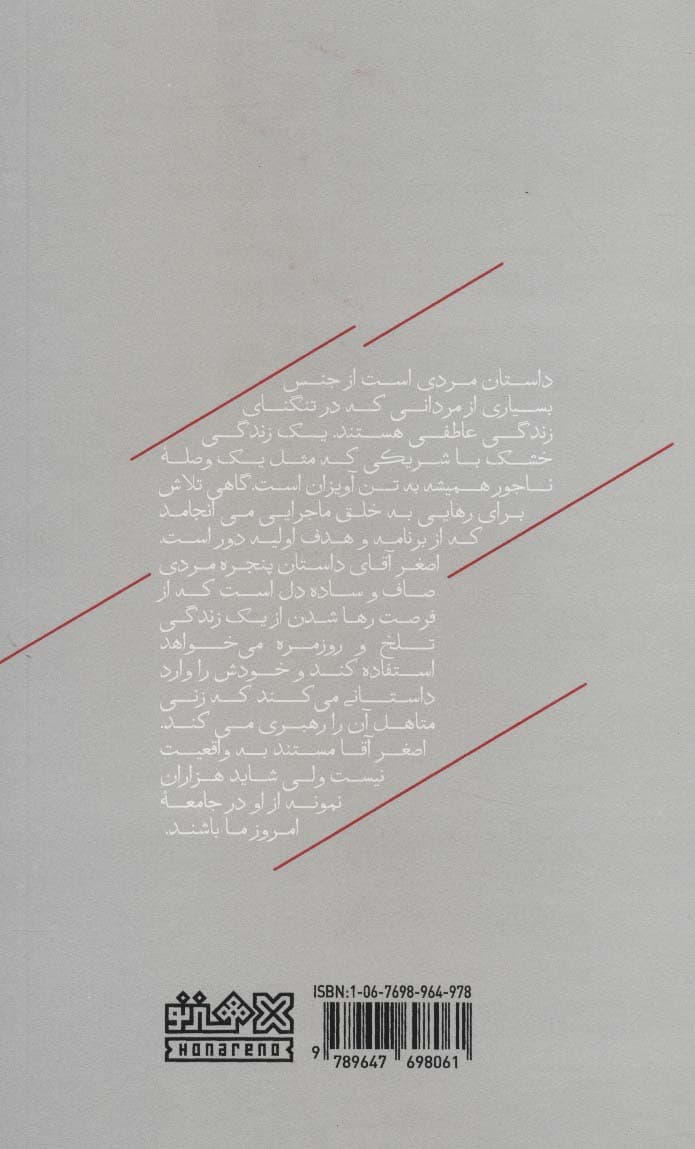 داستان مردی است از جنس
بسیاری از مردانی که در تنگنای
زندگی عاطفی هستند. یک زندگی
خشک با شریکی که مثل یک وصلهٔ
ناجور همیشه به تن آویزان است.گاهی تلاش
برای رهایی به خلق ماجرایی می انجامد
که از برنامه و هدف اولیه دور است.
اصغر آقای داستان پنجره مردی
صاف و ساده دل است که از
فرصت رها شدن از یک زندگی
تلخ و روزمره می‌خواهد
استفاده کند و خودش را وارد
داستانی می‌کند که زنی
متاهل آن را رهبری می کند.
اصغر آقا مستند به واقعیت
نیست ولی شاید هزاران
نمونه از او در جامعهٔ
امروز ما باشند.
ISBN:1-06-7698-964-978
هنر نو
HONARENO
9 789647 698061